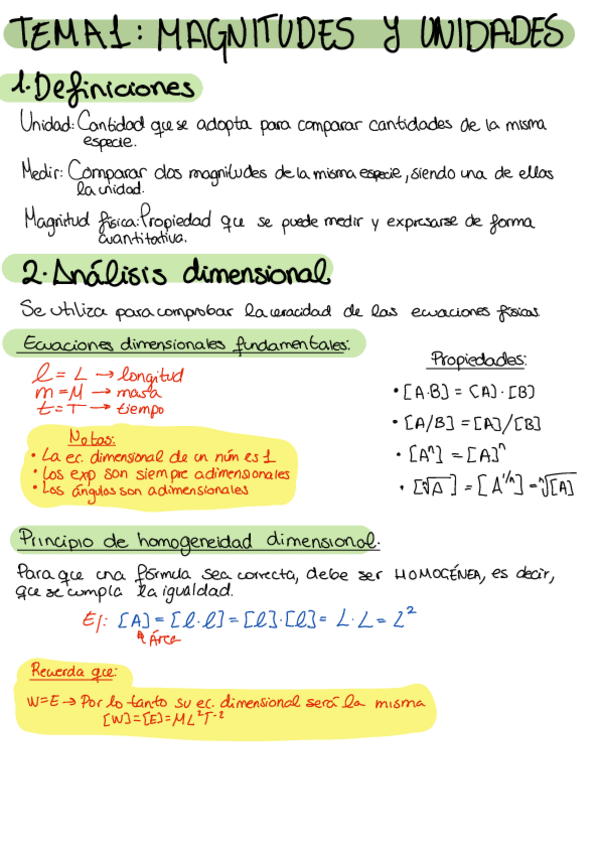 TEMA1: MAGNITUDES Y UNIDADES
1. Definiciones
Unidad: Cantidad que se adopta para comparar cantidades de la misma
especie.
Medir: Comparar dos magnitudes de la misma especie, siendo una de ellas
la unidad.
Magnitud física: Propiedad que se puede medir y expresarse de forma
cuantitativa.
2. Análisis dimensional
Se utiliza para comprobar la veracidad de las ecuaciones físicas
Ecuaciones dimensionales fundamentales:
l = L → longitud
m = M → masa
t = T → tiempo
Notas:
• La ec. dimensional de un núm es 1
• Los exp son siempre adimensionales
• Los ángulos son adimensionales
Propiedades:
• [A·B] = [A]·[B]
• [A/B] = [A]/[B]
• [Aⁿ] = [A]ⁿ
• [ⁿ√A] = [A^1/n] = ⁿ√[A]
Principio de homogeneidad dimensional.
Para que una fórmula sea correcta, debe ser HOMOGÉNEA, es decir,
que se cumpla la igualdad.
Ej: [A] = [l·l] = [l]·[l] = L·L = L²
Área
Recuerda que:
W=E → Por lo tanto su ec. dimensional será la misma
[W]=[E]=ML²T⁻²